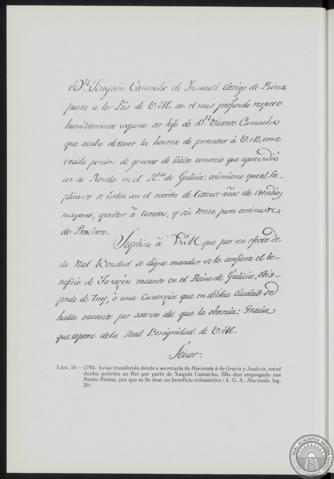 Dn. Joaquin Camacho de
Puesto a los Pies de V.M. con el mas profundo respeto
humildemente expone ser hijo de Dn. Vicente Camacho
que acaba de tener la honrra de presentar à V.M. una
crecida porcion de generos de ilicito comercio que aprendió
con su Ronda en el Reino de Galicia. asimismo que el Su-
plicante se halla con el merito de Catorce años de estudios
mayores, opositor à curatos, y sin renta para ordenarse
de Presbitero.
Suplica à V.M. que por un efecto de
su Real Bondad se digne mandar se le confiera el be-
neficio de vacante en el Reino de Galicia, obis-
pado de Tuy, ó una Canongia que en dicha Ciudad se
halla vacante por ascenso del que la obtenia: Gracia
que espera de la Real Benignidad de V.M.
Señor:
Lám. 10.—1793. Aviso transferido desde a secretaría de Hacienda á de Gracia y Justicia, encol
dunha petición ao Rei por parte de Xaquín Camacho, fillo dun empregado nas
Reales Rentas, pra que se lle dese un beneficio eclesiástico (A. G. S., Hacienda, leg.
20).